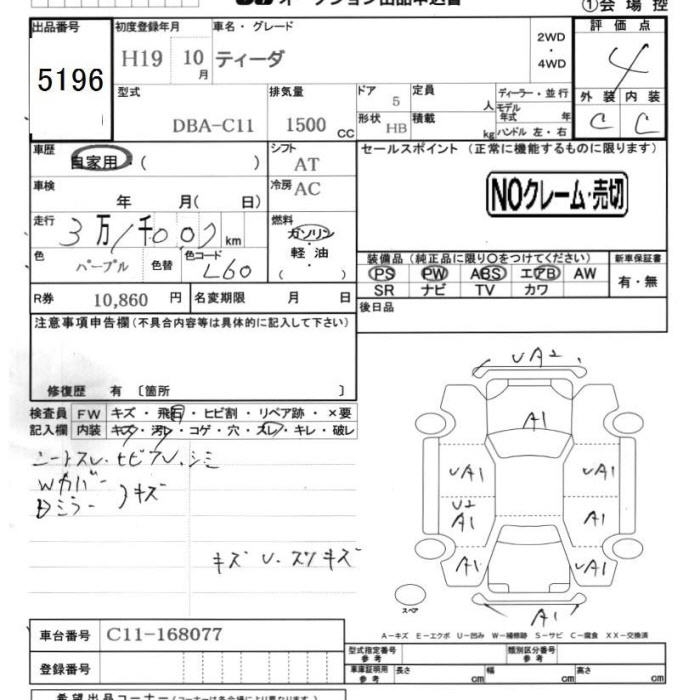 オークション出品申込書
①会場控
出品番号
5196
初度登録年月
H19 10月
車名・グレード
ティーダ
2WD
・
4WD
評価点
4
外装 内装
C C
型式
DBA-C11
排気量
1500 CC
ドア
5
定員
人
ディーラー・並行
モデル
年式 年
形状 HB
積載
kg
ハンドル 左・右
車歴
自家用・( )
シフト
AT
セールスポイント (正常に機能するものに限ります)
NOクレーム・売切
車検
年 月( 日)
冷房 AC
走行
3万1千000km
燃料
ガソリン
・
軽油
( )
色
パープル
色替
色コード
L60
装備品 (純正品に限り○をつけてください)
PS PW ABS エアB AW
SR ナビ TV カワ
新車保証書
有・無
R券 10,860 円
名変期限 月 日
後日品
注意事項申告欄(不具合内容等は具体的に記入して下さい)
修復歴 有 〔箇所 〕
検査員
記入欄
FW キズ・飛石・ヒビ割・リペア跡・×要
内装 キズ・汚レ・コゲ・穴・スレ・キレ・破レ
シートスレ.ヒビワレ.シミ
Wカバー
Dミラー
)キズ
キズ U.スリキズ
UA2
A1
UA1 UA1
U2
A1
A1
A1 UA1
A1
スペア
A−キズ E−エクボ U−凹み W−補修跡 S−サビ C−腐食 XX−交換済
車台番号 C11-168077
登録番号
型式指定番号
参考
類別区分番号
参考
車庫証明用
参考
長さ cm
幅 cm
高さ cm
希望出品コーナー